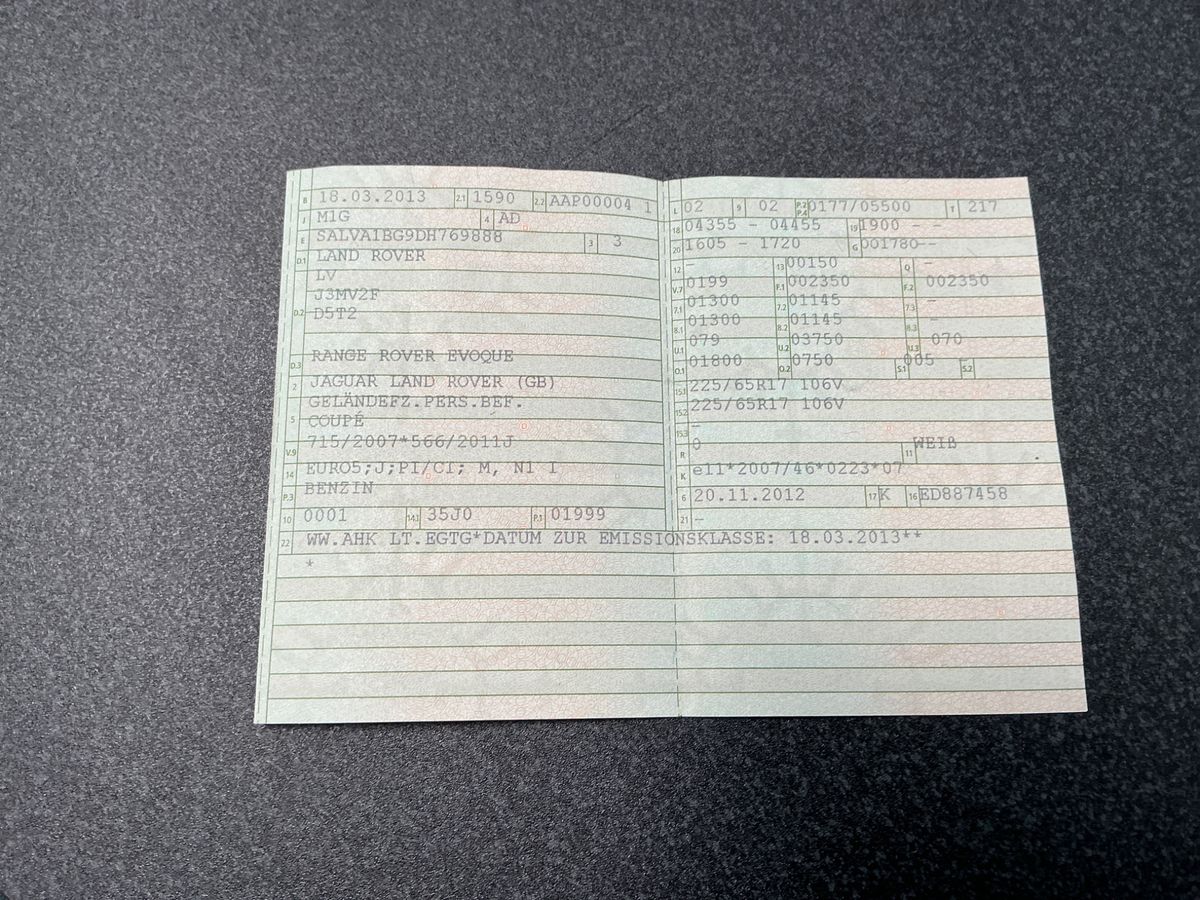 B 18.03.2013 2.1 1590 2.2 AAP00004 1
J M1G 4 AD
E SALVA1BG9DH769888 3 3
D.1 LAND ROVER
LV
J3MV2F
D.2 D5T2
D.3 RANGE ROVER EVOQUE
2 JAGUAR LAND ROVER (GB)
GELÄNDEFZ.PERS.BEF.
5 COUPÉ
V.9 715/2007*566/2011J
14 EURO5;J;PI/CI; M, N1 I
P.3 BENZIN
10 0001 14.1 35J0 P.1 01999
L 02 9 02 P.2 P.4 0177/05500 T 217
18 04355 - 04455 19 1900 - -
20 1605 - 1720 G 001780--
12 - 13 00150 Q -
V.7 0199 F.1 002350 F.2 002350
7.1 01300 7.2 01145 7.3 -
8.1 01300 8.2 01145 8.3 -
U.1 079 U.2 03750 U.3 070
O.1 01800 O.2 0750 S.1 005 S.2 -
15.1 225/65R17 106V
15.2 225/65R17 106V
15.3 -
R 0 11 WEIß
K e11*2007/46*0223*07
6 20.11.2012 17 K 16 ED887458
21 -
22 WW.AHK LT.EGTG*DATUM ZUR EMISSIONSKLASSE: 18.03.2013**
*